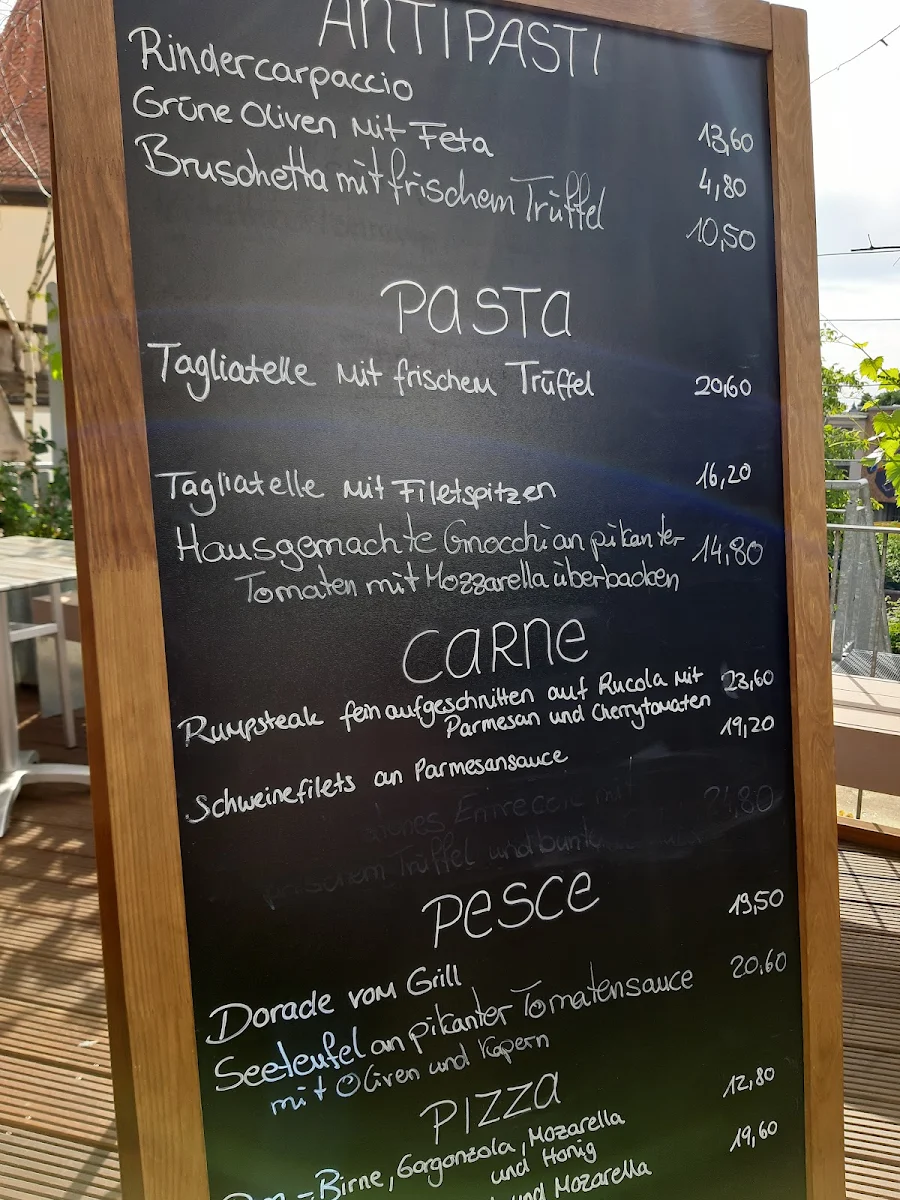 ANTIPASTI
Rindercarpaccio 13,60
Grüne Oliven mit Feta 4,80
Bruschetta mit frischem Trüffel 10,50
PASTA
Tagliatelle mit frischem Trüffel 20,60
Tagliatelle mit Filetspitzen 16,20
Hausgemachte Gnocchi an pikanter 14,80
Tomaten mit Mozzarella überbacken
CARNE
Rumpsteak fein aufgeschnitten auf Rucola mit 23,60
Parmesan und Cherrytomaten
Schweinefilets an Parmesansauce 19,20
Trüffel und bunt
PESCE
Dorade vom Grill 19,50
Seeteufel an pikanter Tomatensauce 20,60
mit Oliven und Kapern
PIZZA
Birne, Gorgonzola, Mozarella 12,80
und Honig
und Mozarella 19,60